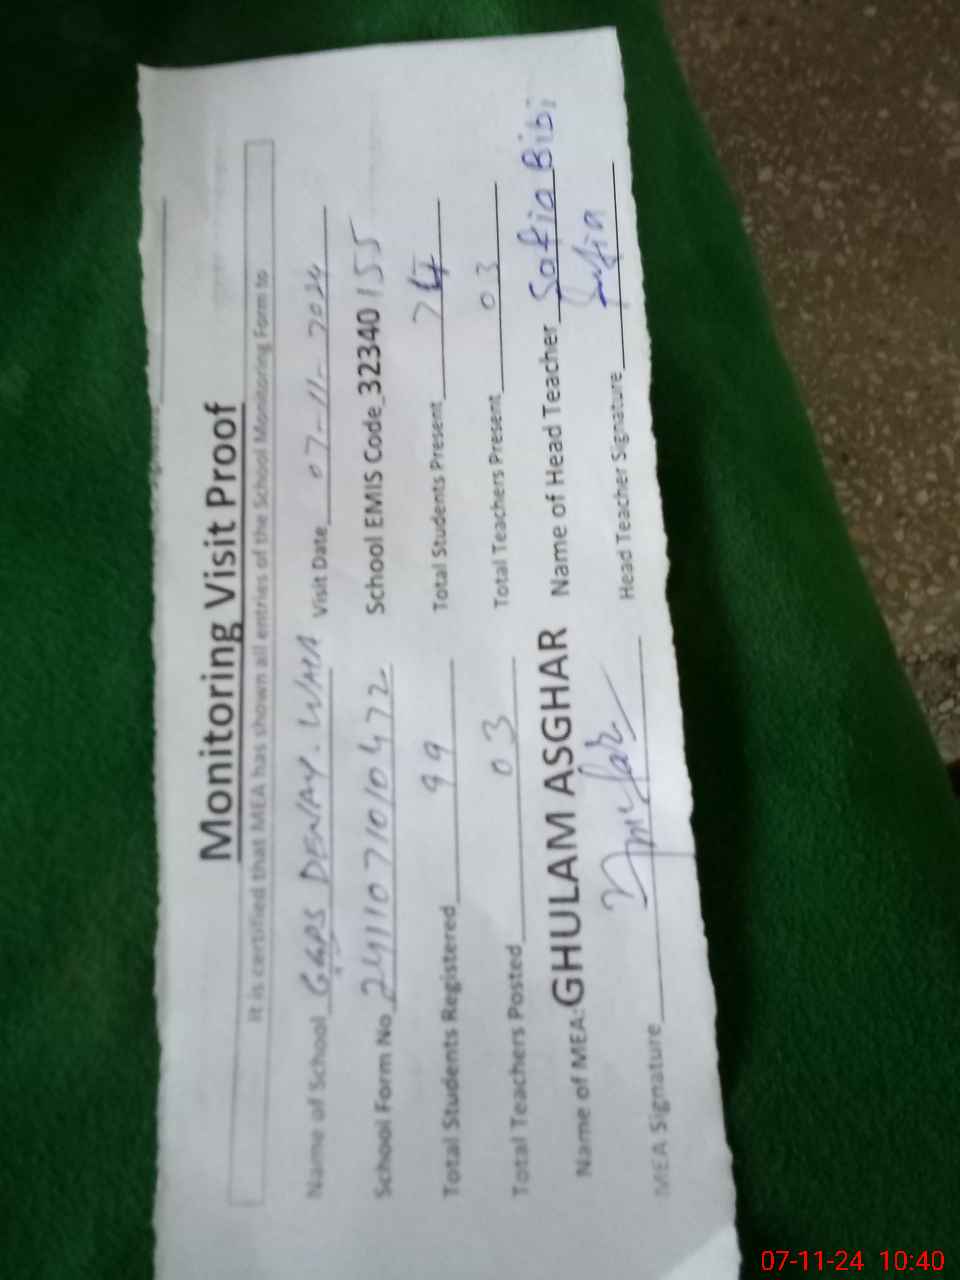 Monitoring Visit Proof
It is certified that MEA has shown all entries of the School Monitoring Form to
Name of School GGPS DEWAY. WALA Visit Date 07-11-2024
School Form No 2411071010472 School EMIS Code 32340155
Total Students Registered 99 Total Students Present 74
Total Teachers Posted 03 Total Teachers Present 03
Name of MEA: GHULAM ASGHAR Name of Head Teacher Sofia Bibi
MEA Signature Head Teacher Signature Sofia
07-11-24 10:40